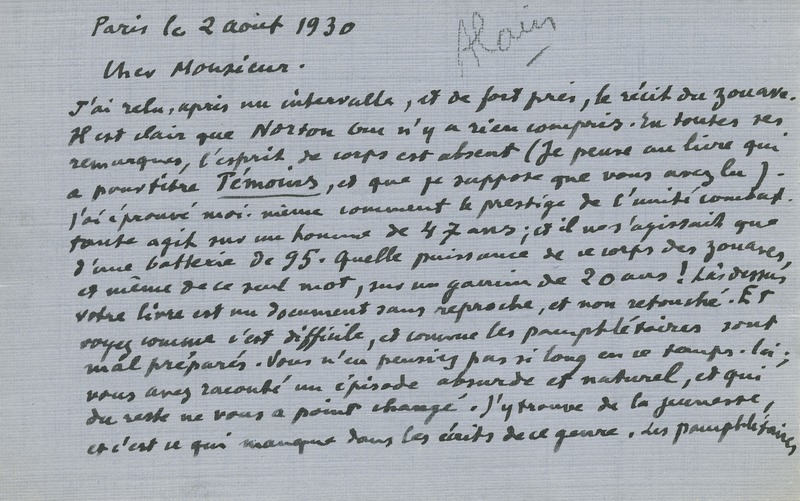 Paris le 2 août 1930
Alain
Cher Monsieur.
J'ai relu, après un intervalle, et de fort près, le récit du zouave.
Il est clair que Norton Cru n'y a rien compris. En toutes ses
remarques, l'esprit de corps est absent (Je pense au livre qui
a pour titre Témoins, et que je suppose que vous avez lu). -
J'ai éprouvé moi-même comment le prestige de l'unité combat-
tante agit sur un homme de 47 ans; et il ne s'agissait que
d'une batterie de 95. Quelle puissance de ce corps des zouaves,
et même de ce seul mot, sur un gamin de 20 ans ! Là-dessus
votre livre est un document sans reproche, et non retouché. Et
voyez comme c'est difficile, et comme les pamphlétaires sont
mal préparés. Vous n'en pensiez pas si long en ce temps-là;
vous avez raconté un épisode absurde et naturel, et qui
du reste ne vous a point changé. J'y trouve de la jeunesse,
et c'est ce qui manque dans les écrits de ce genre. Les pamphlétaires